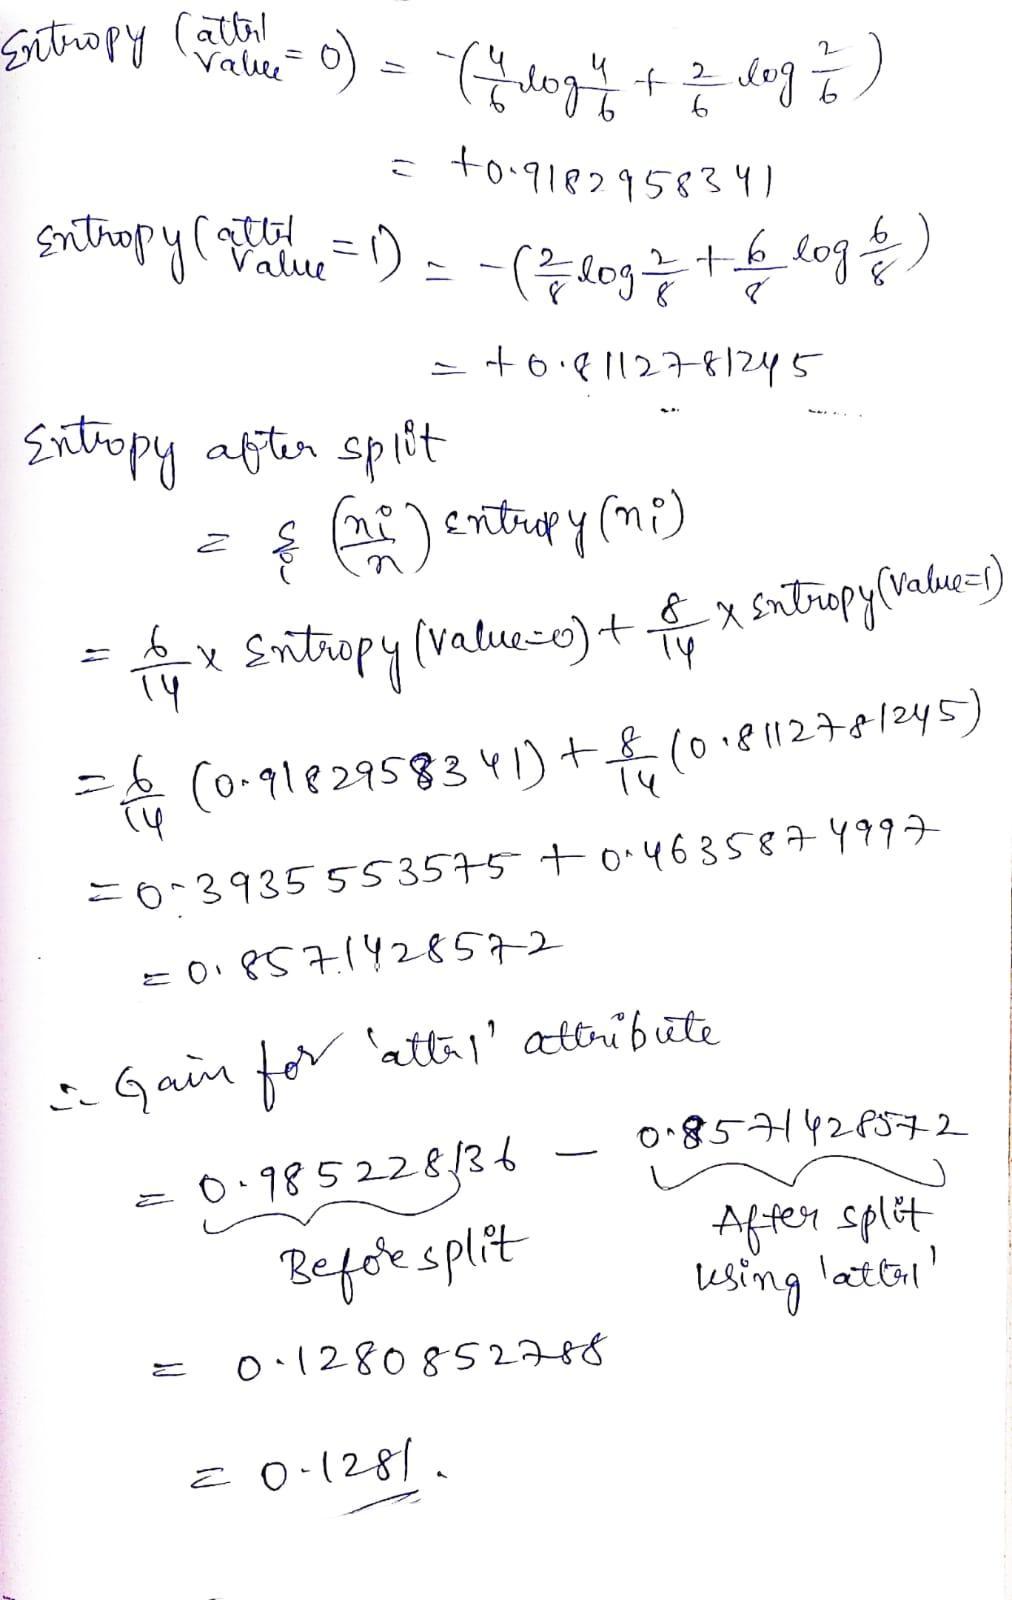 Entropy (attr1 value = 0) = -(4/6 log 4/6 + 2/6 log 2/6)
= +0.9182958341
Entropy (attr1 value = 1) = -(2/8 log 2/8 + 6/8 log 6/8)
= +0.8112781245
Entropy after split
= Σi (ni/n) entropy (ni)
= 6/14 x Entropy (value=0) + 8/14 x Entropy (value=1)
= 6/14 (0.9182958341) + 8/14 (0.8112781245)
= 0.3935553575 + 0.4635874997
= 0.8571428572
∴ Gain for 'attr1' attribute
= 0.985228136 - 0.8571428572
Before split
After split
using 'attr1'
= 0.1280852788
= 0.1281.